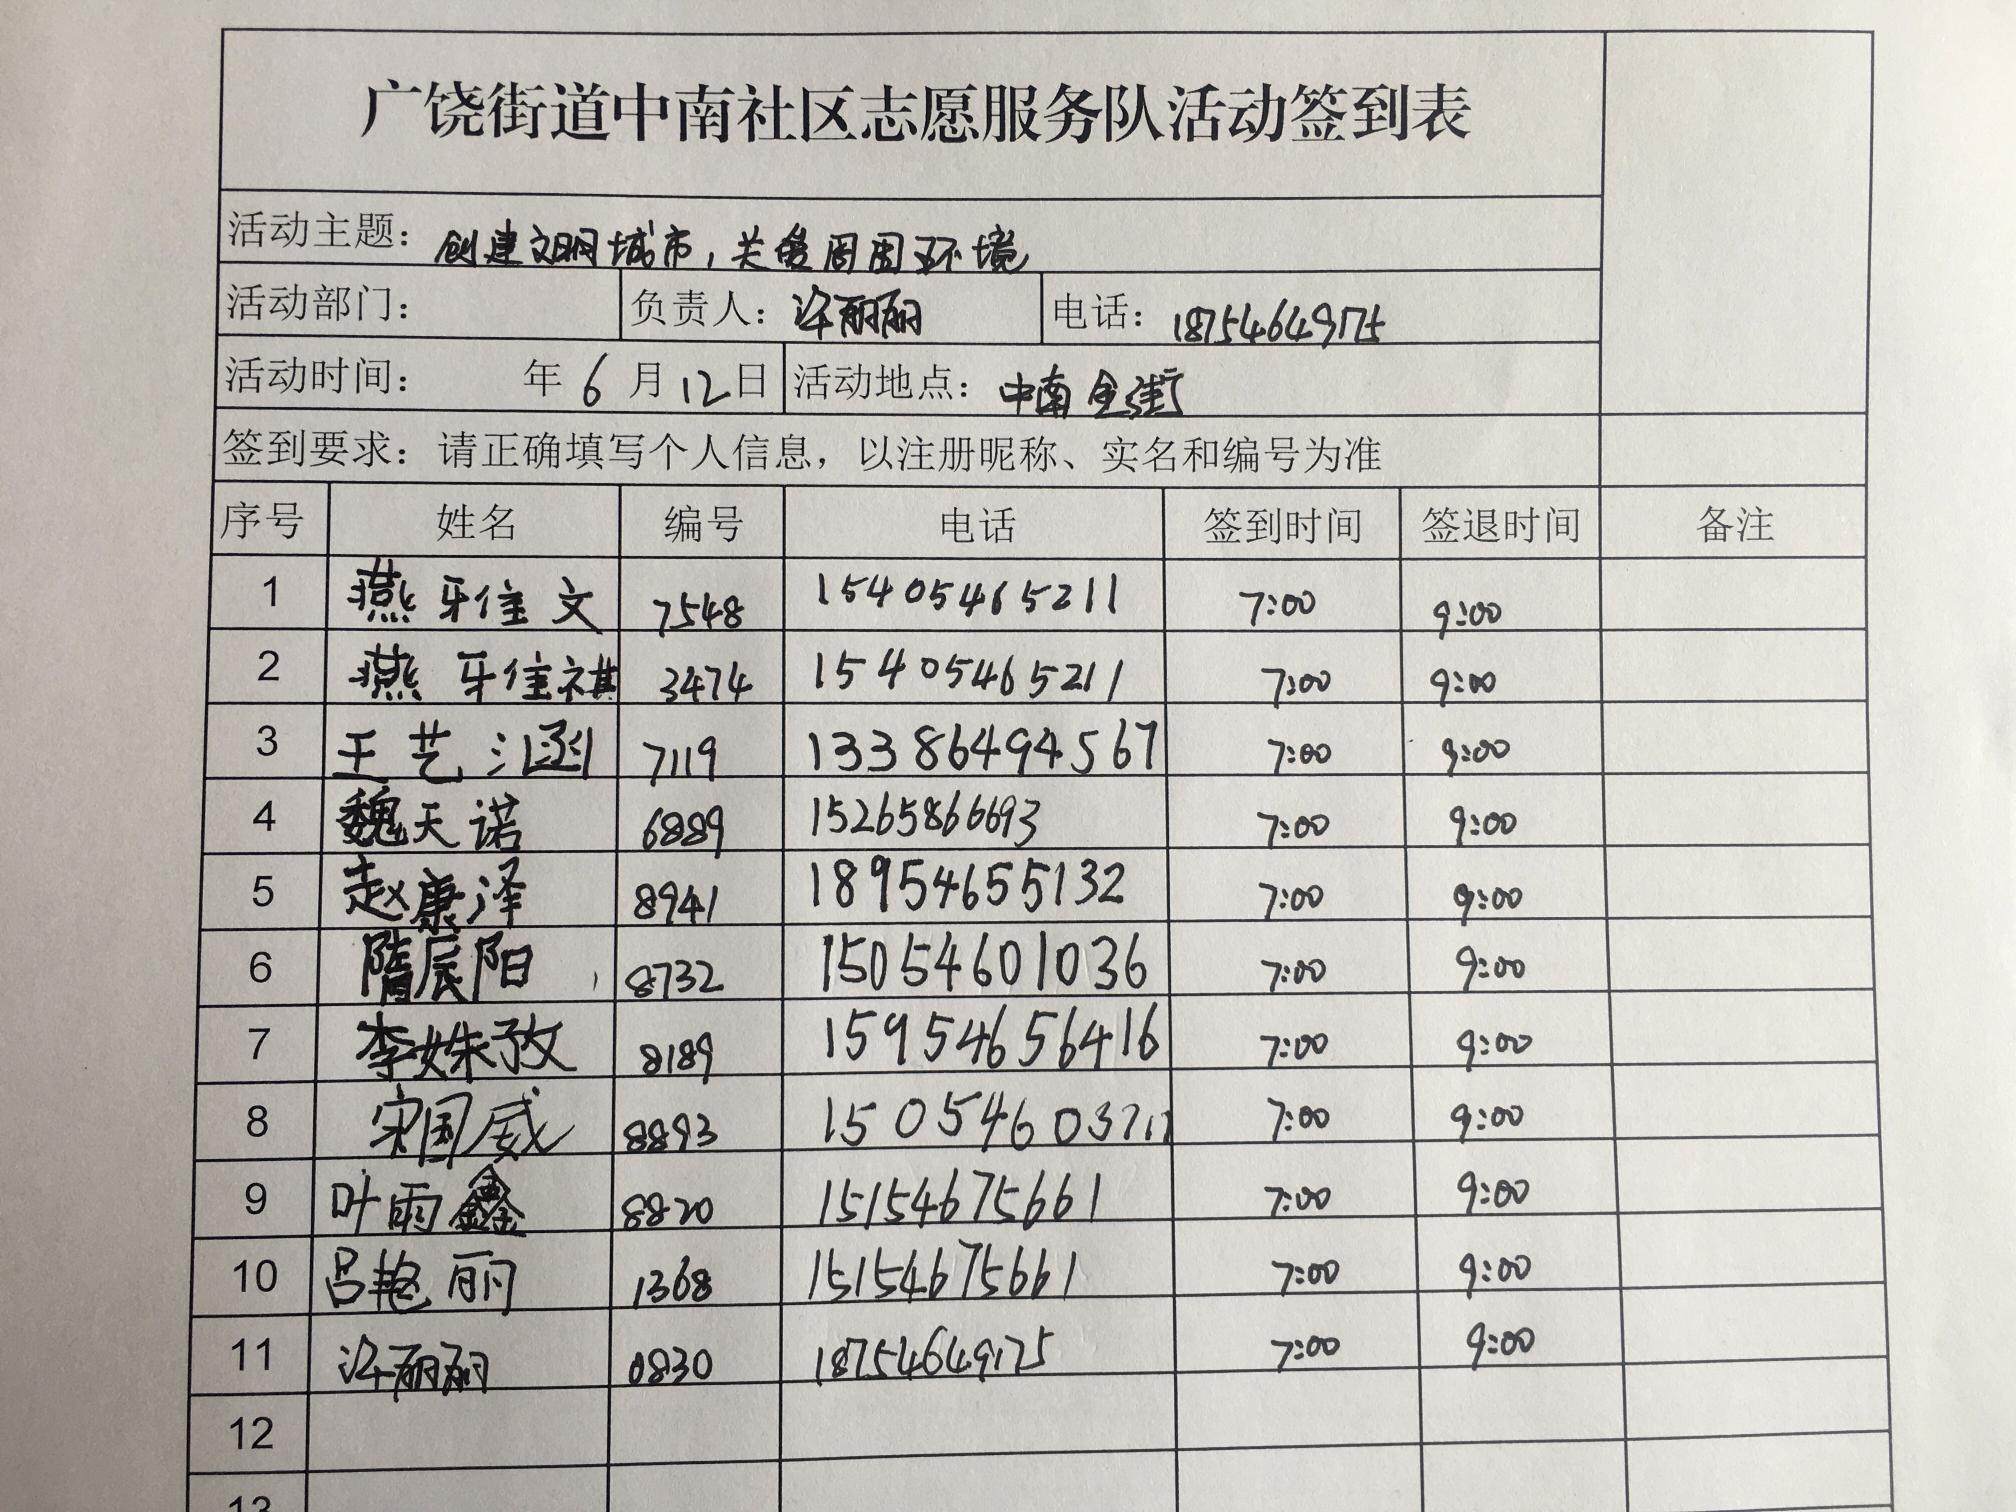 广饶街道中南社区志愿服务队活动签到表
活动主题：创建文明城市，关爱周围环境
活动部门： 负责人：许丽丽 电话：18754649175
活动时间： 年 6 月 12 日 活动地点：中南金街
签到要求：请正确填写个人信息，以注册昵称、实名和编号为准
序号 姓名 编号 电话 签到时间 签退时间 备注
1 燕雅文 7548 15405465211 7:00 9:00
2 燕雅祺 3474 15405465211 7:00 9:00
3 王艺涵 7119 13386494567 7:00 9:00
4 魏天诺 6889 15265866693 7:00 9:00
5 赵康泽 8941 18954655132 7:00 9:00
6 隋辰阳 8732 15054601036 7:00 9:00
7 李姝孜 8189 15954656416 7:00 9:00
8 宋国威 8893 7:00 9:00
9 叶雨鑫 8820 15154675661 7:00 9:00
10 吕艳丽 1368 15154675661 7:00 9:00
11 许丽丽 0830 18754649175 7:00 9:00
12
13